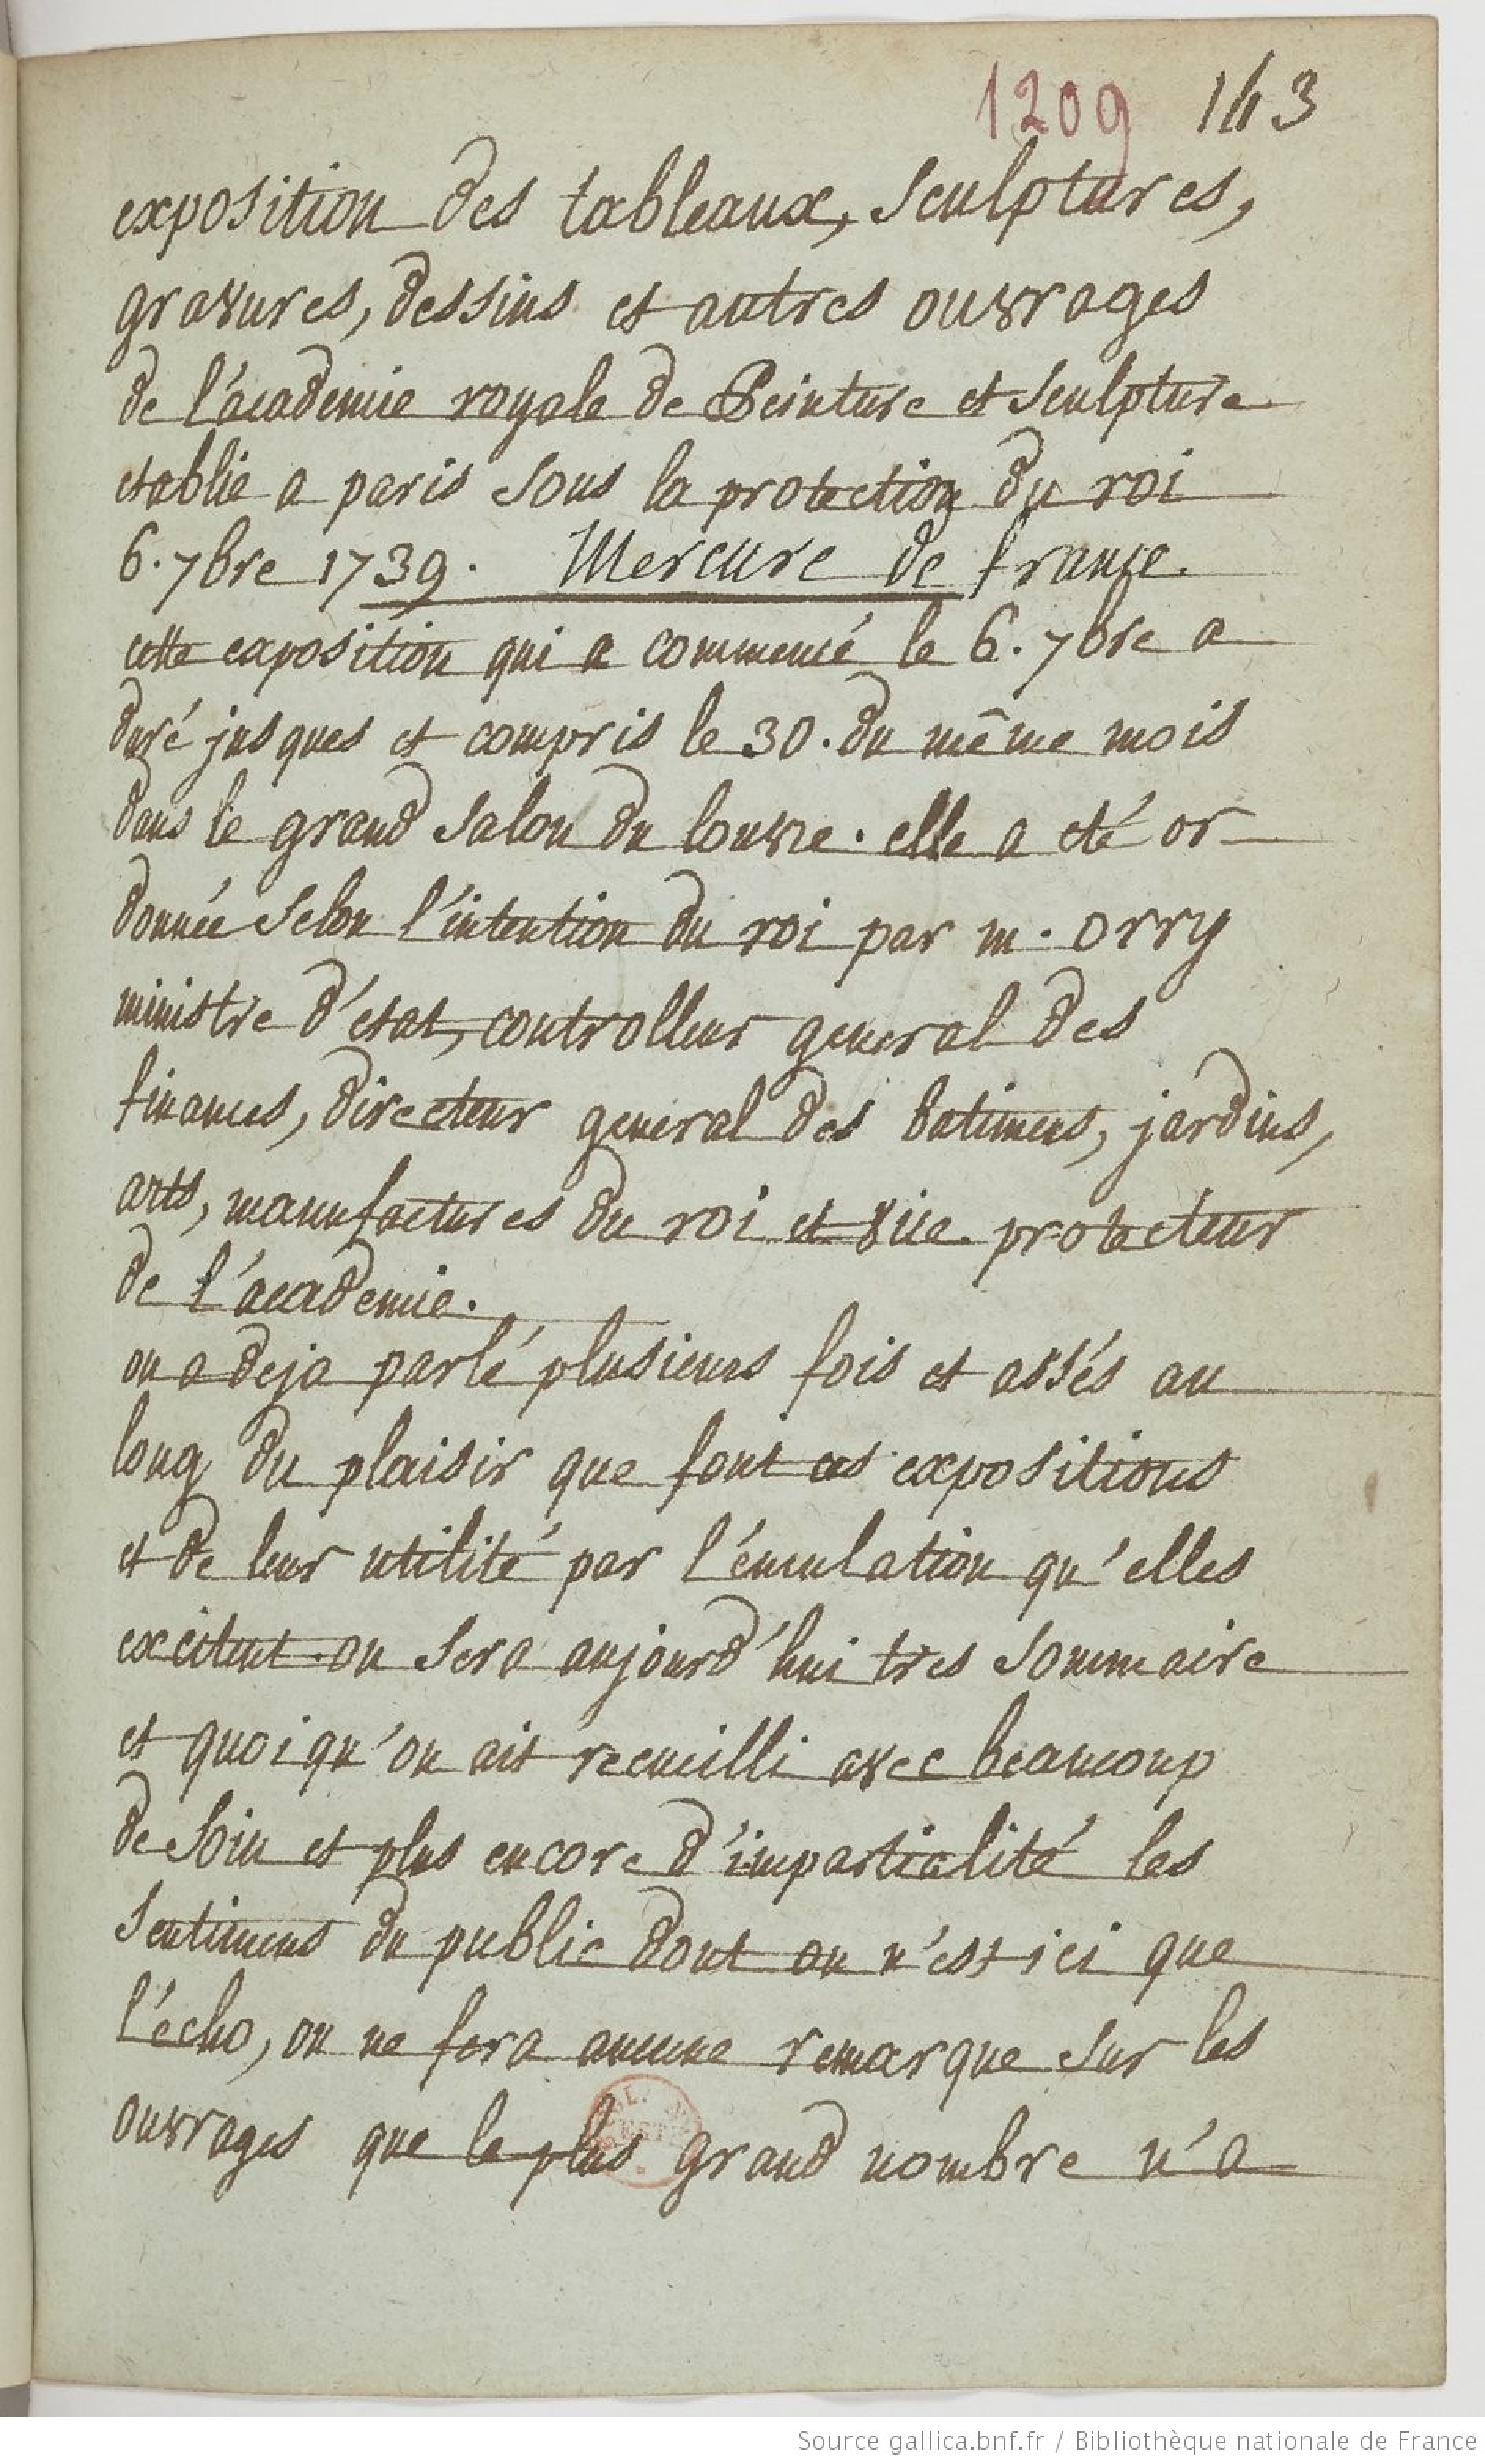 1209 143
exposition des tableaux, sculptures,
gravures, dessins et autres ouvrages
de l'academie royale de Peinture et sculpture
etablie a paris sous la protection du roi
6. 7bre 1739. Mercure de france.
cette exposition qui a commencé le 6. 7bre a
duré jusques et compris le 30. du même mois
dans le grand salon du louvre. elle a eté or
donnée selon l'intention du roi par m. orry
ministre d'etat, controlleur general des
finances, directeur general des batimens, jardins,
arts, manufactures du roi et vice protecteur
de l'academie.
on a deja parlé plusieurs fois et assés au
long du plaisir que font ces expositions
et de leur utilité par l'émulation qu'elles
excitent. on sera aujourd'hui tres sommaire
et quoiqu'on ait recueilli avec beaucoup
de soin et plus encore d'impartialité les
sentimens du public dont on n'est ici que
l'écho, on ne fera aucune remarque sur les
ouvrages que le plus grand nombre n'a
Source gallica.bnf.fr / Bibliothèque nationale de France